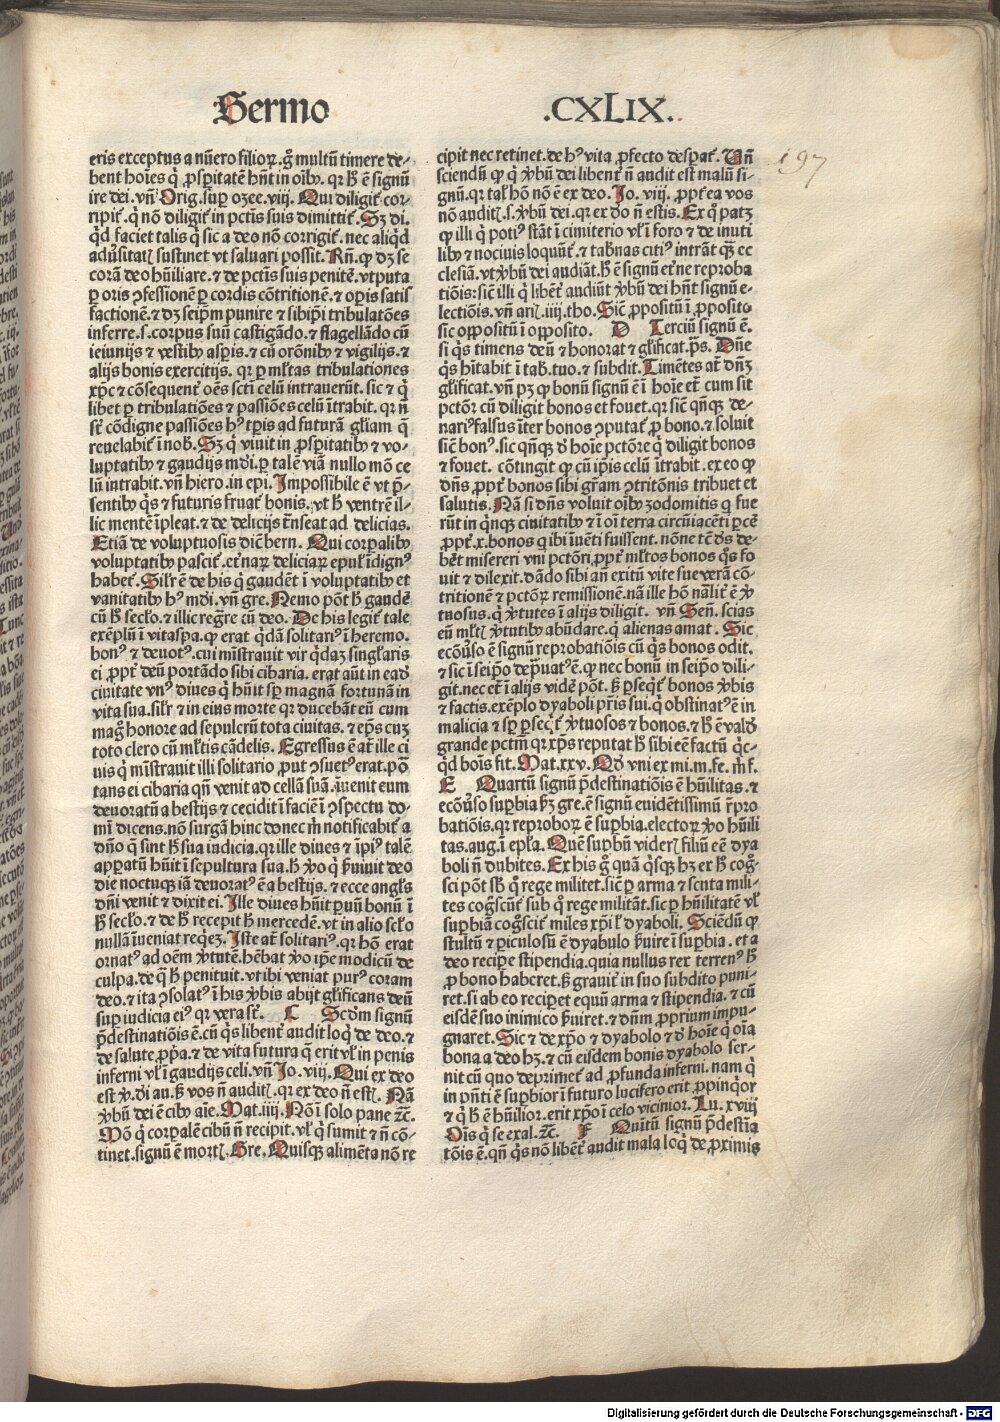 Sermo .CXLIX.
197
eris exceptus a nūero filioꝝ. g̊ multū timere de-
bent hoīes q̇ ꝓsꝑitatē hn̄t in oībꝰ. qꝛ h̄ ē signū
ire dei. vn̄ Orig. suꝑ ozee. viij. Qui diligit̄ cor-
ripit̄. q̇ nō diligit̄ in pctīs suis dimittit̄. Sꝫ di.
q̇d faciet talis q̇ sic a deo nō corrigit̄. nec aliq̇d
aduˀsitatꝭ sustinet vt saluari possit. Rn̄. ꝙ dꝫ se
corā deo hūiliare. ⁊ de pctīs suis penitē. vtputa
ꝑ oris ꝯfessionē ꝑ cordis cōtritionē. ⁊ oꝑis satis
factionē. ⁊ dꝫ seip̄m punire ⁊ sibiip̄i tribulatōes
inferre. s. corpus suū castigādo. ⁊ flagellādo cū
ieiunijs ⁊ vestibꝰ asꝑis. ⁊ cū orōnibꝰ ⁊ vigilijs. ⁊
alijs bonis exercitijs. qꝛ ꝑ ml̄tas tribulationes
xp̄c ⁊ cōsequent̄ oēs scti celū intrauerūt. sic ⁊ q̇
libet ꝑ tribulatiōes ⁊ passiōes celū ītrabit. qꝛ n̄
st̄ cōdigne passiōes hꝰ tꝑis ad futurā gl̄iam q̇
reuelabit̄ ī nob̄. Sꝫ q̇ viuit in ꝓsꝑitatibꝰ ⁊ vo-
luptatibꝰ ⁊ gaudijs mūdi. ꝑ talē viā nullo mō ce
lū intrabit. vn̄ hiero. in epi. Impossibile ē vt p̄-
sentibꝰ q̇s ⁊ futuris fruat̄ bonis. vt h̄ ventrē il-
lic mentē īpleat. ⁊ de delicijs trāseat ad delicias.
Etiā de voluptuosis dic̄ bern. Qui corꝑalibꝰ
voluptatibꝰ pascit̄. et̄naꝝ deliciaꝝ epul̄ īdignꝰ
habet̄. Sil̄r ē de his q̇ gaudēt ī voluptatibꝰ et
vanitatibꝰ hꝰ mūdi. vn̄ gre. Nemo pōt h̄ gaudē
cū h̄ secl̄o. ⁊ illic regn̄re cū deo. De his legit̄ tale
exēplū ī vitaspa. ꝙ erat q̇dā solitariꝰ ī heremo.
bonꝰ ⁊ deuotꝰ. cui mīstrauit vir q̇daꝫ singl̄aris
ei ꝓpt̄ deū portādo sibi cibaria. erat aūt in eadē
ciuitate vnꝰ diues q̇ hūit sp̄ magnā fortunā in
vita sua. sil̄r ⁊ in eius morte qꝛ ducebāt eū cum
mag̊ honore ad sepulcrū tota ciuitas. ⁊ ep̄s cuꝫ
toto clero cū ml̄tis cādelis. Egressus ē at̄ ille ci
uis q̇ mīstrauit illi solitario ꝓut ꝯsuetꝰ erat. por
tans ei cibaria qn̄ venit ad cellā suā. īuenit eum
deuoratū a bestijs ⁊ cecidit ī faciē ī ꝯspectu do-
mī dicens. nō surgā hinc donec m̄ notificabit̄ a
dn̄o q̄ sint h̄ sua iudicia. qꝛ ille diues ⁊ īpiꝰ talē
apꝑatū hūit ī sepultura sua. h̄ v̊o q̇ ẜuiuit deo
die noctuqꝫ iā deuoratꝰ ē a bestijs. ⁊ ecce angl̄s
dn̄i venit ⁊ dixit ei. Ille diues hūit ꝑuū bonū ī
h̄ secl̄o. ⁊ de h̄ recepit h̄ mercedē. vt in alio scl̄o
nullā īueniat requiē. Iste at̄ solitariꝰ. qꝛ hō erat
ornatꝰ ad oēm v̇tutē. hēbat v̊o ip̄e modicū de
culpa. de q̄ h̄ penituit. vt ibi veniat purꝰ coram
deo. ⁊ ita ꝯsolatꝰ ī his v̇bis abijt gl̄ificans deū
suꝑ iudicia eiꝰ qꝛ vera st̄. C Scd̄m signū
p̄destinatiōis ē. cū q̇s libent̄ audit loq̇ de deo. ⁊
de salute ꝓpa. ⁊ de vita futura q̄ erit vl̄ in penis
inferni vl̄ ī gaudijs celi. vn̄ Io. viij. Qui ex deo
est v̇ba dei au. ꝓpt̄ea vos n̄ auditꝭ. qꝛ ex deo n̄ estꝭ. Nā
v̇bū dei ē cibꝰ aīe. Mat. iiij. Nō ī solo pane ⁊c̄.
Mō q̇ corꝑalē cibū n̄ recipit. vl̄ q̇ sumit ⁊ n̄ cō-
tinet. signū ē mortꝭ. Gre. Quisqꝫ alimēta nō re
cipit nec retinet. de hꝰ vita ꝓfecto desꝑat̄. Vn̄
sciendū ꝙ q̇ v̇bū dei libent̄ n̄ audit est malū si-
gnū. qꝛ tal̄ hō nō ē ex deo. Io. viij. ꝓpt̄ ea vos
nō auditꝭ. s. v̇bū dei. qꝛ ex deo n̄ estis. Ex q̇ patꝫ
ꝙ illi q̇ potiꝰ stāt ī cimiterio vl̄ ī foro ⁊ de inuti
libꝰ ⁊ nociuis loquūt̄. ⁊ tab̄nas citiꝰ intrāt qꝫ̄ ec
clesiā. vt v̇bū dei audiāt. h̄ ē signū et̄ne reproba
tiōis: sic̄ illi q̇ libent̄ audiūt v̇bū dei hn̄t signū e-
lectiōis. vn̄ ari. iiij. tho. Sic̄ ꝓpositū ī ꝓposito
sic oppositū ī opposito. D Terciū signū ē.
si q̇s timens deū ⁊ honorat ⁊ gl̄ificat. ps. Dn̄e
q̇s hītabit ī tab̄. tuo. ⁊ subdit. Timētes at̄ dn̄ꝫ
gl̄ificat. vn̄ pꝫ ꝙ bonū signū ē ī hoīe et̄ cum sit
pctōr cū diligit bonos et fouet. qꝛ sic̄ qn̄qꝫ de-
nariꝰ falsus īter bonos ꝯputat̄ ꝓ bono. ⁊ soluit
sic̄ bonꝰ. sic qn̄qꝫ d̄ hoīe pctōre q̇ diligit bonos
⁊ fouet. cōtingit ꝙ cū ip̄is celū ītrabit. ex eo ꝙ
dn̄s ꝓpt̄ bonos sibi gr̄am ꝯtritōnis tribuet et
salutis. Nā si dn̄s voluit oībꝰ zodomitis q̇ fue
rūt in q̇nqꝫ ciuitatibꝰ ⁊ ī oī terra circūiacēti ꝑcē
ꝓpt̄. x. bonos q̇ ibi īuēti fuissent. nōne tc̄ ds̄ de-
bēt misereri vni pctōri ꝓpt̄ ml̄tos bonos q̇s fo
uit ⁊ dilexit. dādo sibi an̄ exitū vite sue verā cō-
tritionē ⁊ pctōꝝ remissionē. nā ille hō nāl̄it̄ ē v̇
tuosus. q̇ v̇tutes ī alijs diligit. vn̄ Sen̄. scias
eū ml̄tꝭ v̇tutibꝰ abūdare. q̇ alienas amat. Sic
ecōuˀso ē signū reprobatiōis cū q̇s bonos odit.
⁊ sic ī seip̄o dep̄uatꝰ ē. ꝙ nec bonū in seip̄o dili-
git. nec et̄ ī alijs vidē pōt. sꝫ ꝑseq̇t̄ bonos v̇bis
⁊ factis. exēplo dyaboli pr̄is sui. q̇ obstinatꝰ ē in
malicia ⁊ sp̄ ꝑseq̇t̄ v̇tuosos ⁊ bonos. ⁊ h̄ ē valde
grande pctm̄ qꝛ xp̄s reputat h̄ sibi eē factū q̇c-
q̇d boīs fit. Mat. xxv. Qd̄ vni ex mi. m. fe. m̄ f.
E Quartū signū p̄destinatiōis ē hūilitas. ⁊
ecōuˀso suꝑbia sꝫ gre. ē signū euidētissimū r̄pro
batiōis. qꝛ reproboꝝ ē suꝑbia. electoꝝ v̊o hūili
tas. aug. ī epl̄a. Quē suꝑbū viderꝭ filiū eē dya
boli n̄ dubites. Ex his g̊ quā q̇sqꝫ hꝫ er h̄ cog̊-
sci pōt sb̄ q̇ rege militet. sic̄ ꝑ arma ⁊ scuta mili-
tes cog̊scūt̄ sub q̇ rege militāt. sic ꝑ hūilitatē vl̄
suꝑbiā cog̊scit̄ miles xp̄i l̄ dyaboli. Sciēdū ꝙ
stultū ⁊ ꝑiculosū ē dyabulo ẜuire ī suꝑbia. et a
deo reciꝑe stipendia. quia nullus rex terrenꝰ h̄
ꝓ bono haberet. sꝫ grauit̄ in suo subdito puni-
ret. si ab eo reciꝑet equū arma ⁊ stipendia. ⁊ cū
eisdē suo inimico ẜuiret. ⁊ dn̄m ꝓprium impu-
gnaret. Sic ⁊ de xp̄o ⁊ dyabolo ⁊ d̄ hoīe q̇ oīa
bona a deo hꝫ. ⁊ cū eisdem bonis dyabolo ser-
uit cū quo deprimet̄ ad ꝓfunda inferni. nam q̇
in pn̄ti ē suꝑbior ī futuro lucifero erit ꝓpinq̇or
⁊ q̇ h̄ ē hūilior. erit xp̄o ī celo vicinior. Lu. xviij
Oīs q̇ se exal. ⁊c̄. F Quītū signū p̄destīa
tōis ē. qn̄ q̇s nō libent̄ audit mala loq̇ de ꝓximis
Digitalisierung gefördert durch die Deutsche Forschungsgemeinschaft - DFG